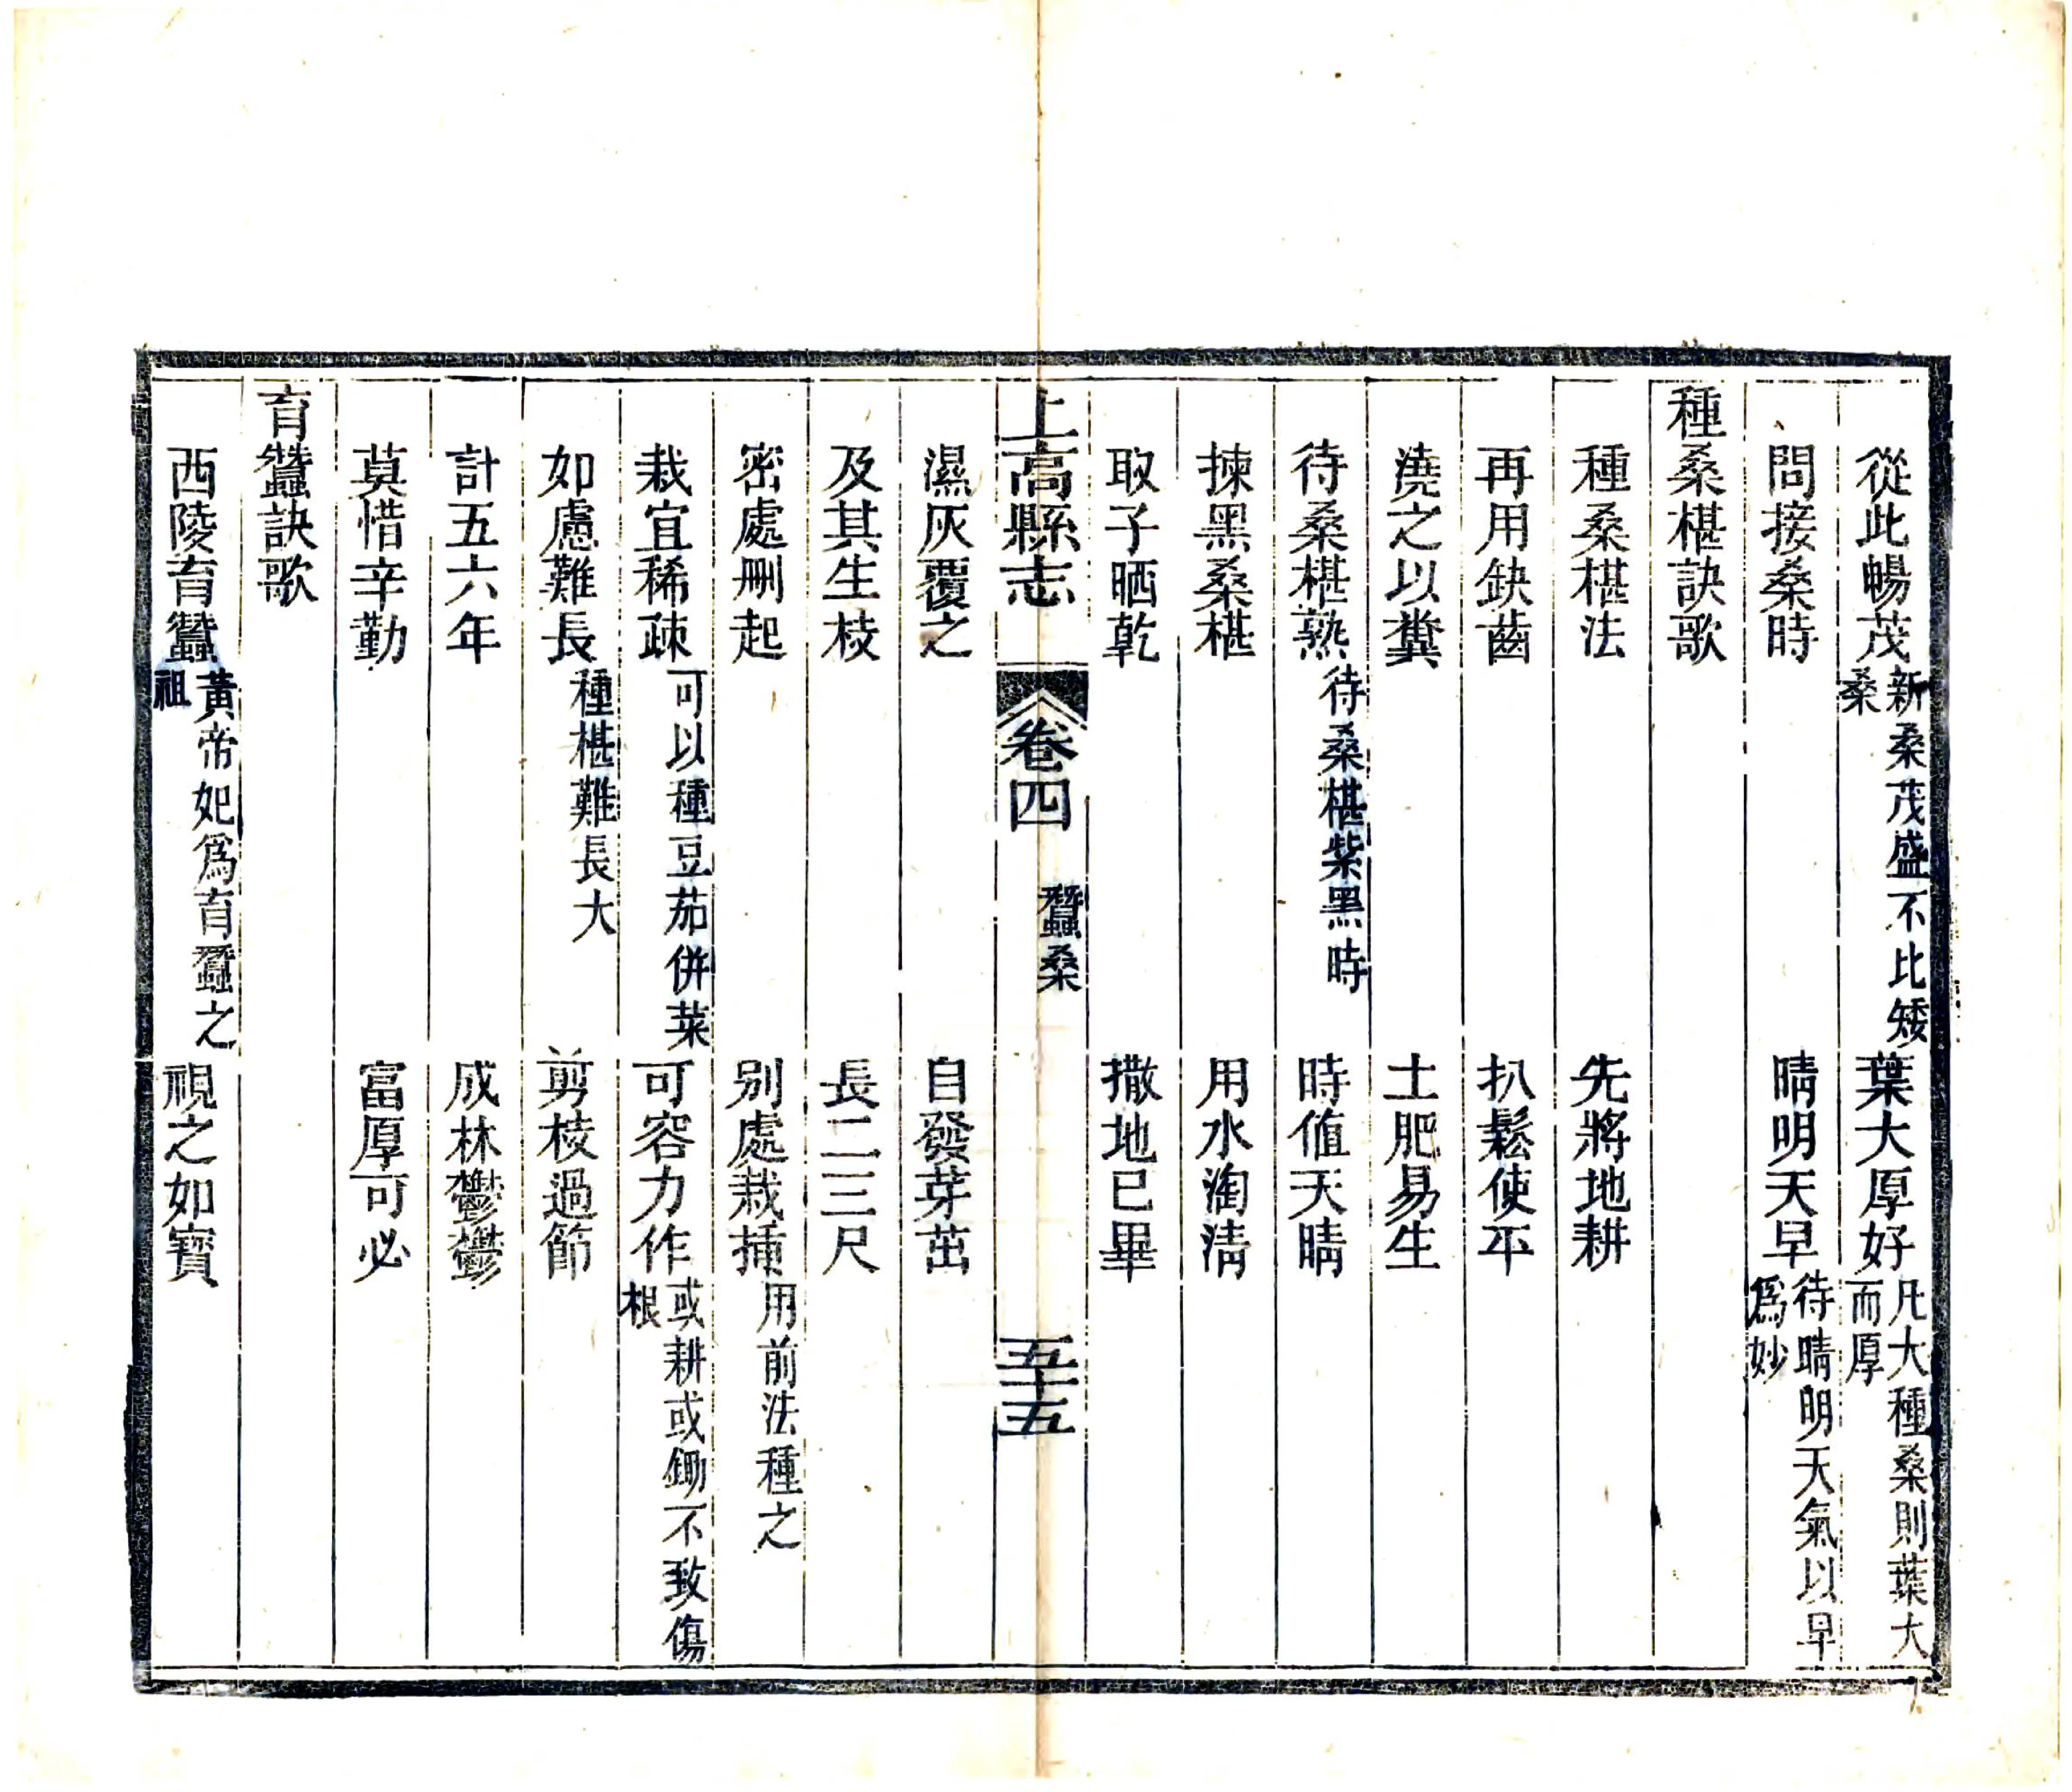 從此暢茂新桑茂盛不比矮桑葉大厚好凡大種桑則葉大而厚
問接桑時晴明天早待晴明天氣以早爲妙
種桑椹訣歌
種桑椹法先將地耕
再用鈌齒扒鬆使平
澆之以糞土肥易生
待桑椹熟待桑椹紫黑時時值天晴
揀黑桑椹用水淘淸
取子晒乾撒地已畢
上高縣志卷四蠶桑五十五
濕灰覆之自發芽茁
及其生枝長二三尺
密處刪起别處栽揷用前法種之
栽宜稀疎可以種豆茄併菜可容力作或耕或鋤不致傷根
如慮難長種椹難長大剪枝過節
計五六年成林鬱鬱
莫惜辛勤富厚可必
育蠶訣歌
西陵育蠶黃帝妃爲育蠶之祖視之如寳